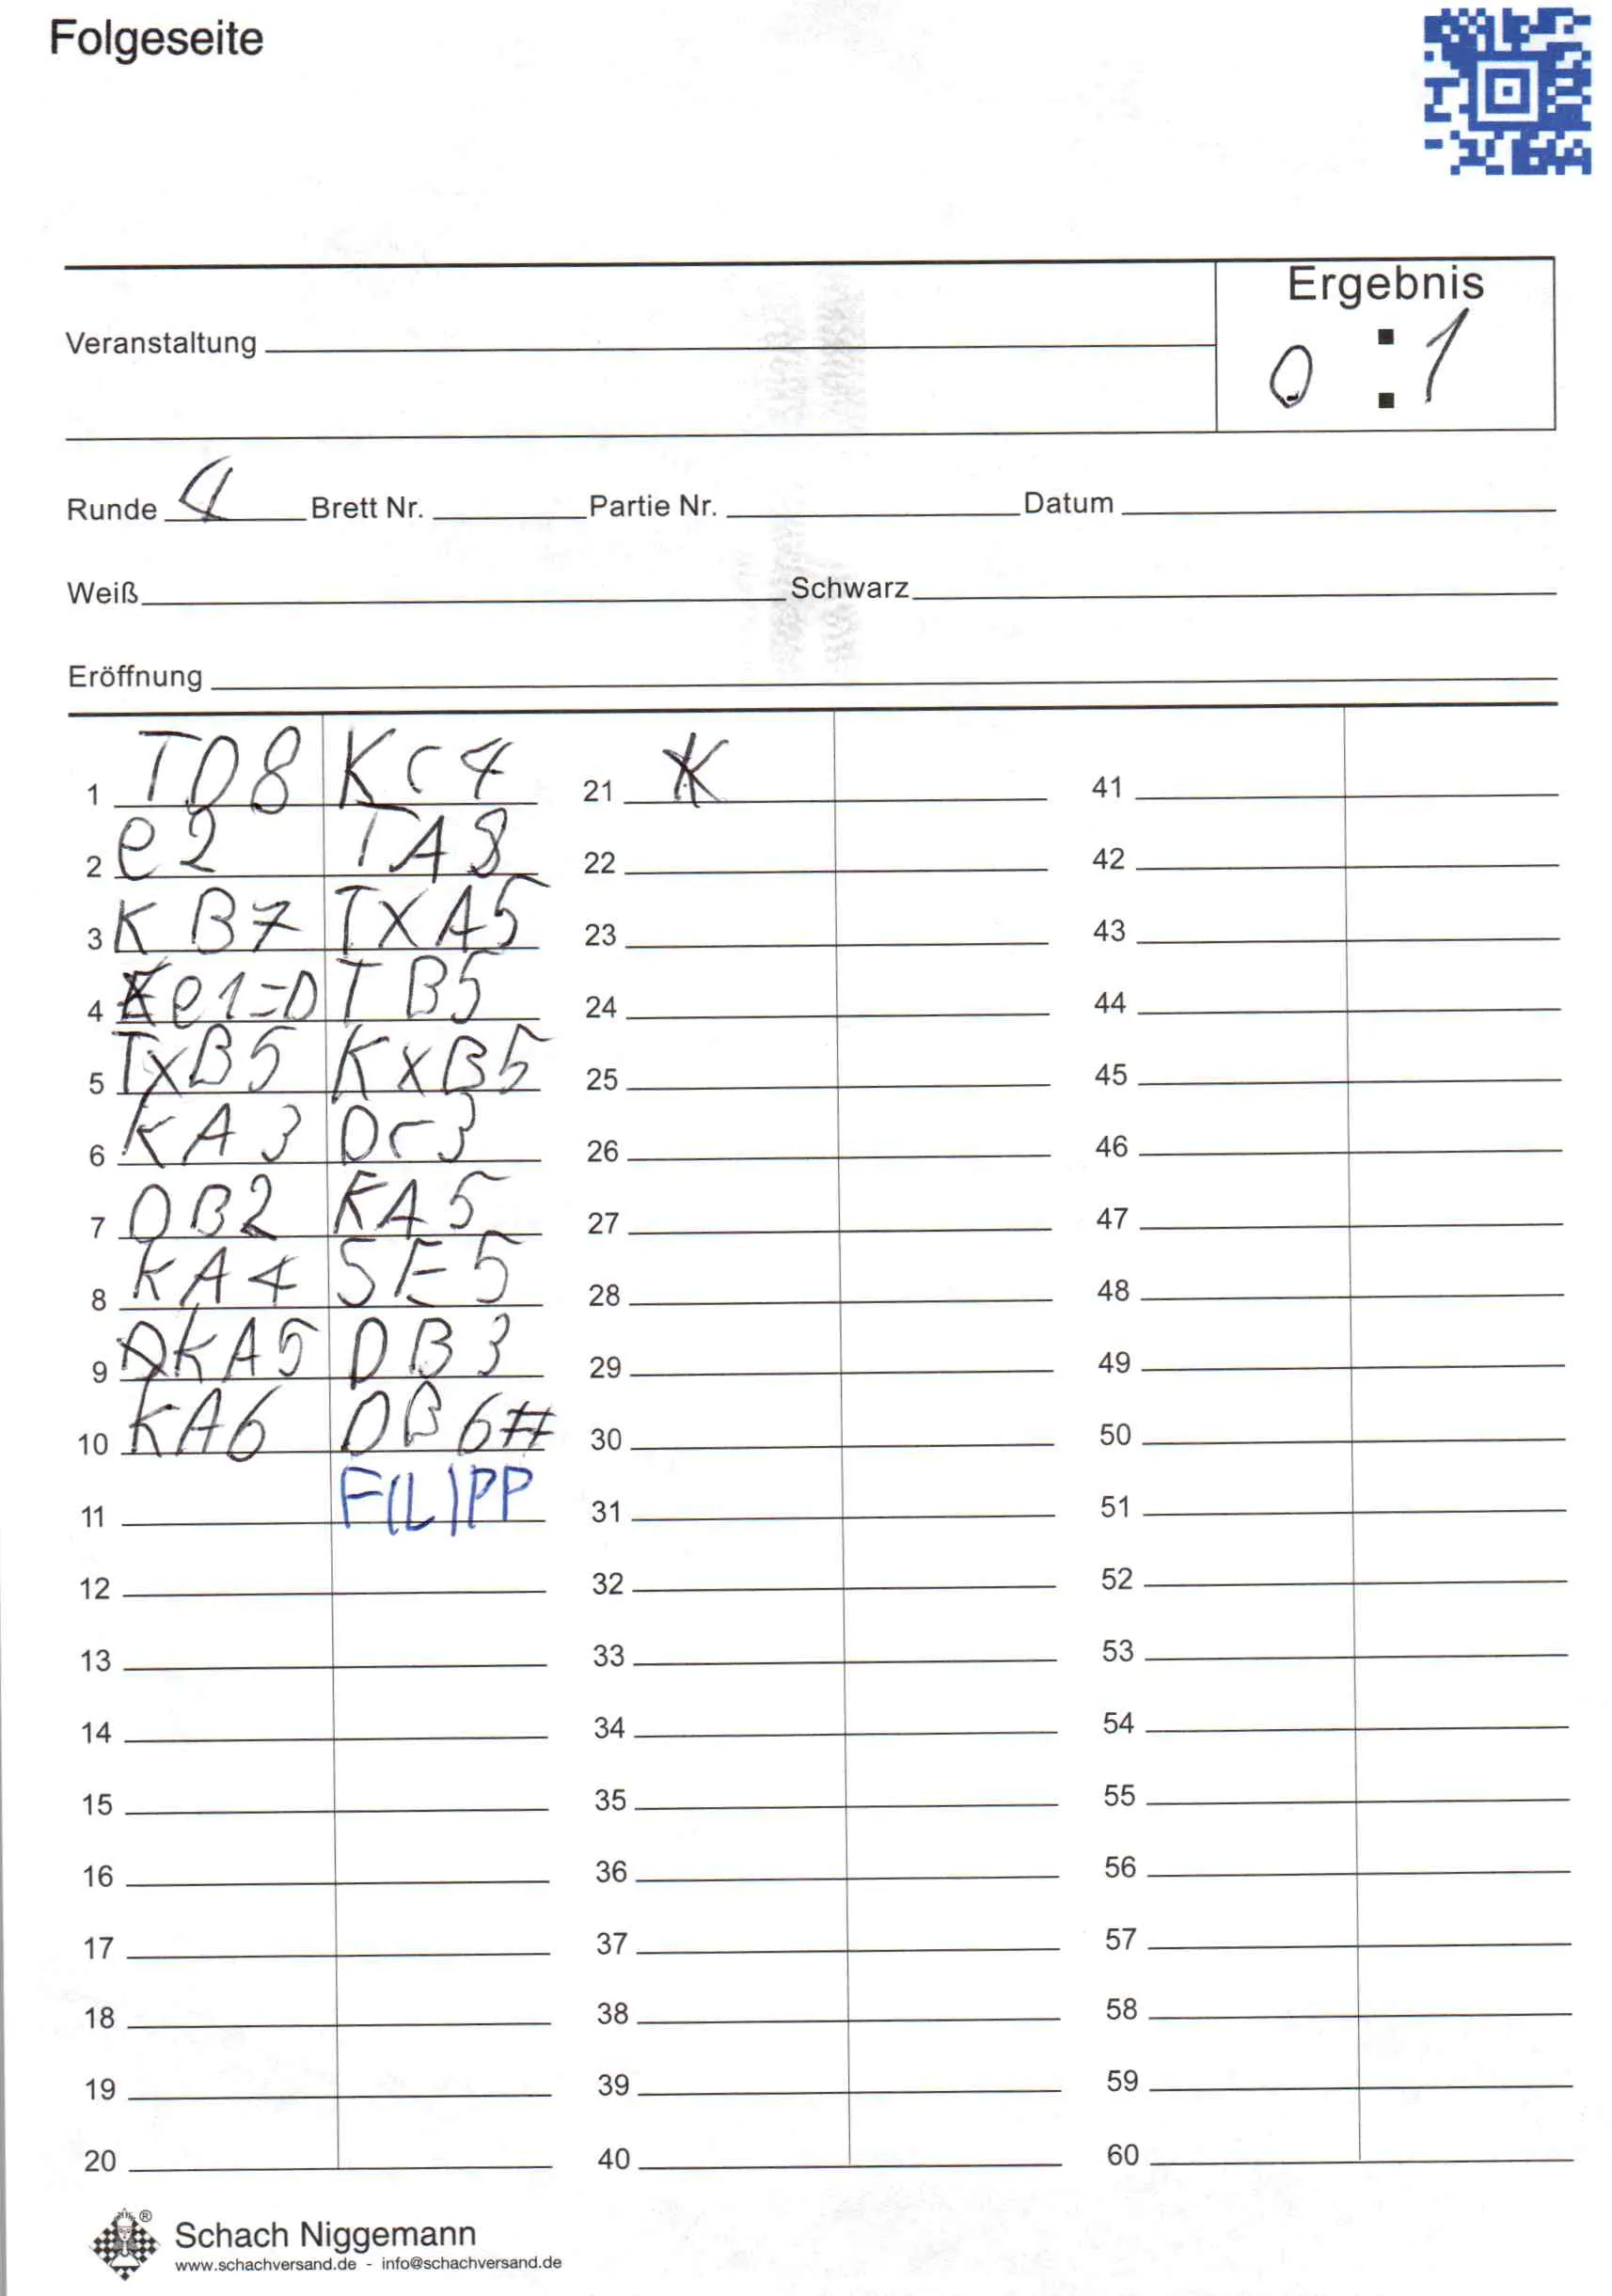 Folgeseite
Ergebnis
0 : 1
Veranstaltung
Runde 4 Brett Nr. Partie Nr. Datum
Weiß Schwarz
Eröffnung
1 TD8 Kc4
2 e2 TA8
3 K B7 TXA5
4 e1=D T B5
5 TxB5 KXB5
6 KA3 Dc3
7 DB2 KA5
8 KA4 SE5
9 KA5 DB3
10 KA6 DB6#
11 FILIPP
12
13
14
15
16
17
18
19
20
21 K
22
23
24
25
26
27
28
29
30
31
32
33
34
35
36
37
38
39
40
41
42
43
44
45
46
47
48
49
50
51
52
53
54
55
56
57
58
59
60
®
Schach Niggemann
www.schachversand.de - info@schachversand.de